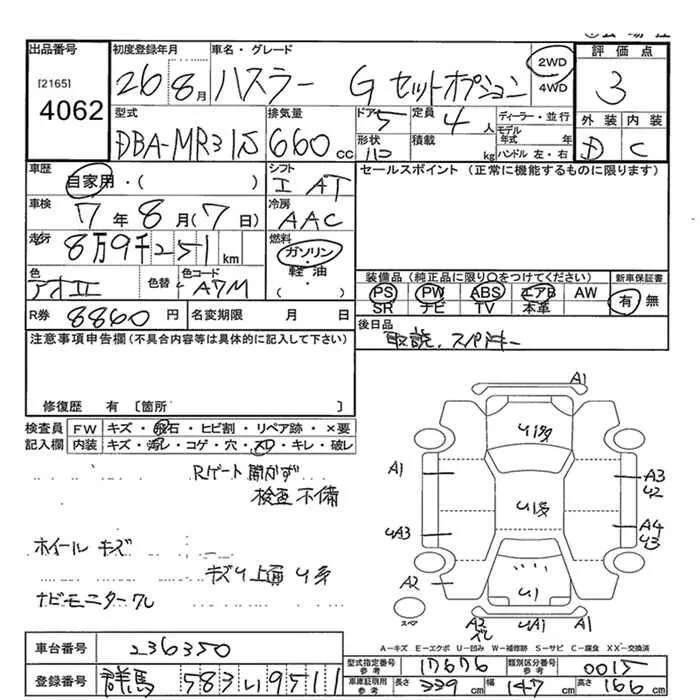 出品番号
[2165]
4062
初度登録年月
26 8月
車名・グレード
ハスラー G セットオプション
2WD
4WD
評価点
3
型式
DBA-MR31S
排気量
660cc
ドア
5
形状
定員
4人
積載
kg
ディーラー・並行
モデル年式 年
ハンドル 左・右
外装 内装
D C
車歴
自家用・( )
シフト
I AT
セールスポイント (正常に機能するものに限ります)
車検
7年8月(7日)
冷房
AAC
走行
8万9千251km
燃料
ガソリン
軽油
( )
色
アオII
色替
色コード
A7M
装備品(純正品に限り○をつけてください)
PS PW ABS エアB AW
SR ナビ TV 本革
新車保証書
有 無
R券
8860円
名変期限 月 日
後日品
取説、スペアキー
注意事項申告欄(不具合内容等は具体的に記入して下さい)
修復歴 有 〔箇所 〕
検査員記入欄
FW キズ・飛石・ヒビ割・リペア跡・×要
内装 キズ・汚レ・コゲ・穴・スレ・キレ・破レ
Rゲート開かず
検査不備
ホイールキズ
キズU上通U多
ナビモニタークル
A1
U1多
A1
A3
U2
U1多
UA3
A4
U3
A2
U1
スペア
A2
UA1
A1
A-キズ E-エクボ U-凹み W-補修跡 S-サビ C-腐食 XX-交換済
車台番号
236350
登録番号
群馬 583 い 9511
型式指定番号
参考
17676
類別区分番号
参考
0015
車庫証明用
参考
長さ 339cm
幅 147cm
高さ 166cm